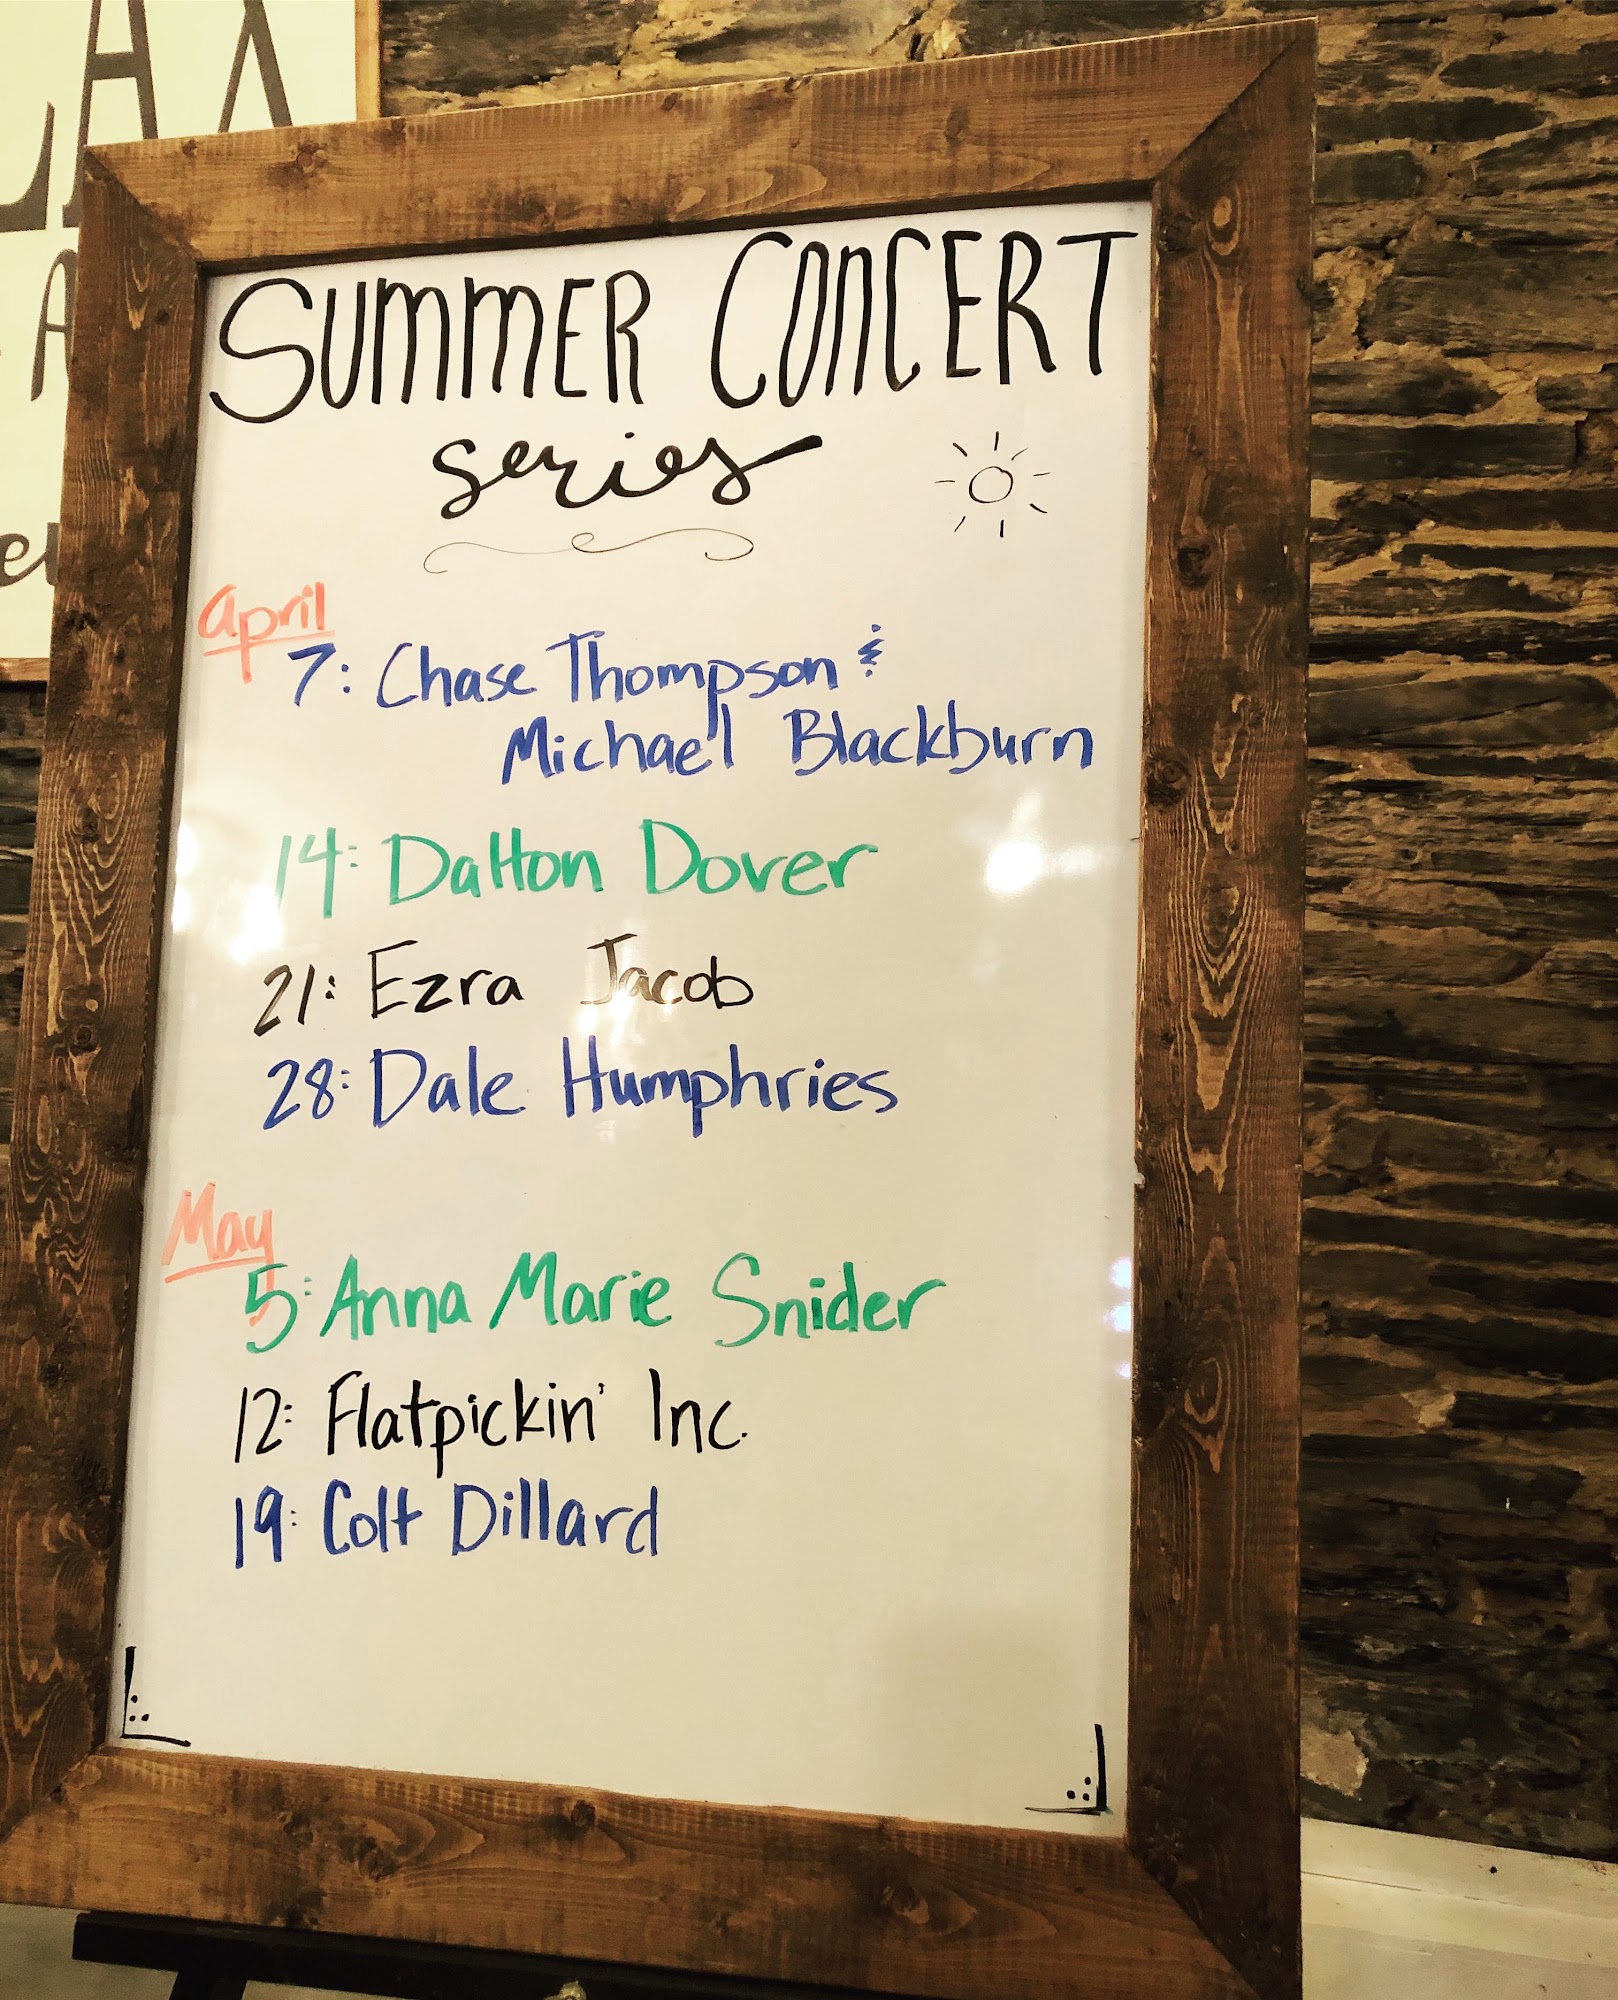 LAX
A
er
SUMMER CONCERT
series
april
7: Chase Thompson &
Michael Blackburn
14: Dalton Dover
21: Ezra Jacob
28: Dale Humphries
May
5: Anna Marie Snider
12: Flatpickin' Inc.
19: Colt Dillard